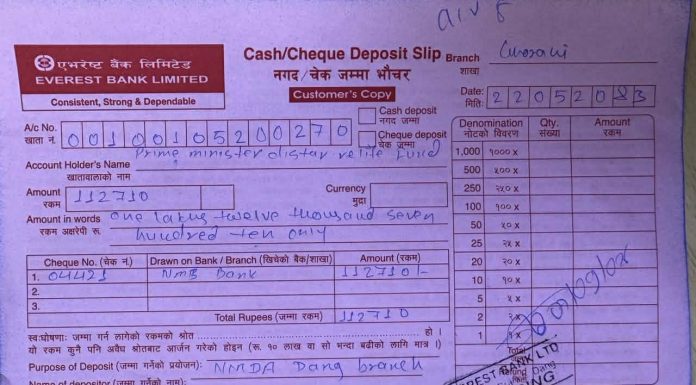 एभरेष्ट बैंक लिमिटेड
EVEREST BANK LIMITED
Consistent, Strong & Dependable
Cash/Cheque Deposit Slip
नगद/चेक जम्मा भौचर
Customer's Copy
Branch
शाखा
Date: 22052083
मिति:
Cash deposit
नगद जम्मा
Cheque deposit
चेक जम्मा
A/c No. 00100105200270
खाता नं.
Prime minister distar relife fund
Account Holder's Name
खातावालाको नाम
Amount 112710 Currency
रकम मुद्रा
Amount in words one lakhs twelve thousand seven
रकम अक्षरेपी रू. hundred ten only
Cheque No. (चेक नं.) Drawn on Bank / Branch (खिचेको बैंक/शाखा) Amount (रकम)
1. 04421 NMB Bank 112710/-
2.
3.
Total Rupees (जम्मा रकम) 112710
स्वःघोषणाः जम्मा गर्न लागेको रकमको श्रोत हो ।
यो रकम कुनै पनि अवैध श्रोतबाट आर्जन गरेको होइन (रू. १० लाख वा सो भन्दा बढीको लागि मात्र ।)
Purpose of Deposit (जम्मा गर्नेको प्रयोजन): NMDA Dang branch
Name of depositor (जम्मा गर्नेको नाम):
Denomination Qty. Amount
नोटको विवरण संख्या रकम
1,000 १००० x
500 ५०० x
250 २५० x
100 १०० x
50 ५० x
25 २५ x
20 २० x
10 १० x
5 ५ x
2 २ x
1 १ x
Total
EREST BANK LTD
Dang